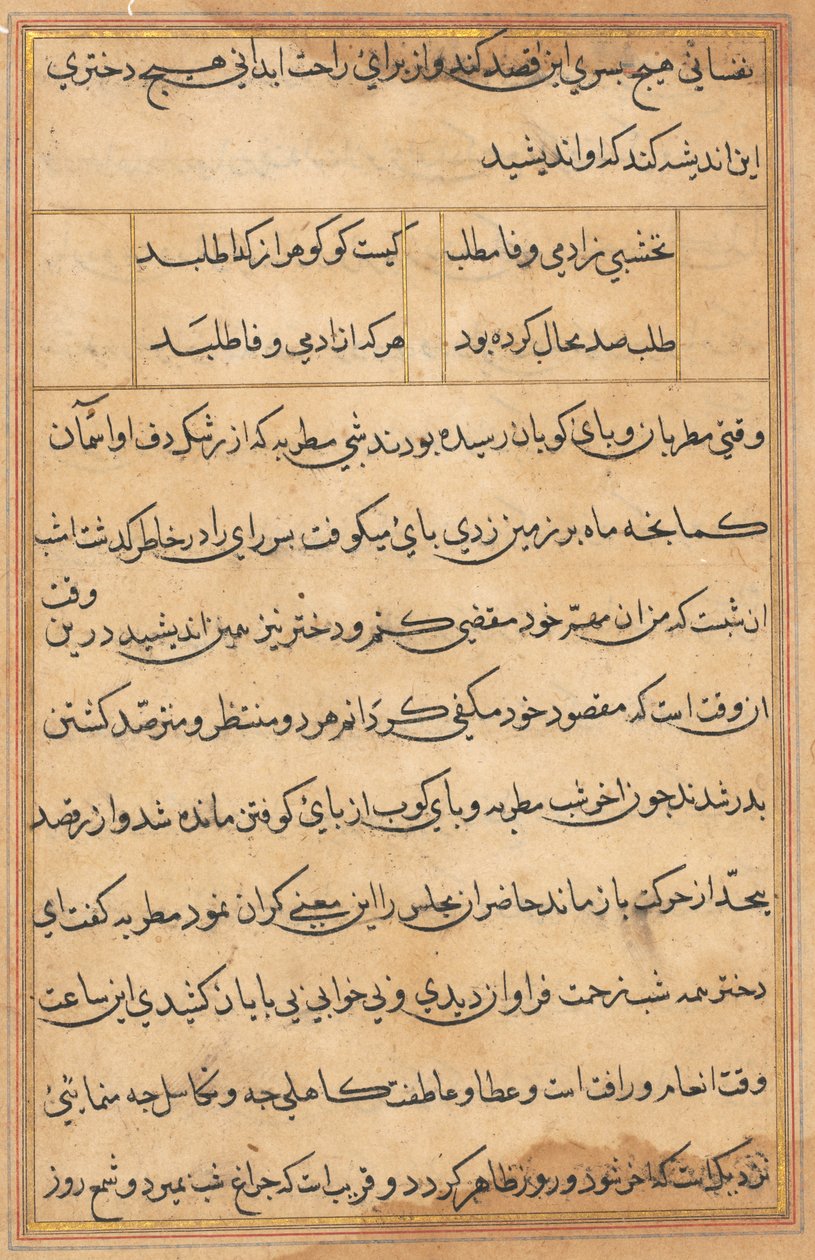 نفسانی هیچ بسری این قصد کند و از برای راحت ابدانی هیچ دختری
این اندیشه کند که او اندیشید
نخشبی زادمی وفا مطلب کیست کو کوهر از کدا طلبد
طلب صد محال کرده بود هر که از ادمی وفا طلبد
وقتی مطربان و بای کوبان رسیده بودند شبی مطربه که از رشک دف او اسمآن
کمابخه ماه بر زمین زدی بای میکوفت بس رای را در خاطر کدشت امشب
ان شبست که من ان مهمّ خود مقضی کنم و دختر نیز همین اندیشید درین وقت
ان وقت است که مقصود خود مکفی کردانم هر دو منتظر و مترصّد کشتن
بدر شدند جون اخر شب مطربه و بای کوب از بای کوفتن مانده شد و از رقصد
بیحدّ از حرکت باز ماند حاضران مجلس را این معنی کران نمود مطربه کفت ای
دختر همه شب زحمت فراوان دیدی و بی خوابی بی بایان کشیدی این ساعت
وقت انعام و رافت است و عطا و عاطفت کاهلی جه و تکاسل جه مینمائی
نزدیک است که اخر شود و روز ظاهر کردد و قریب است که جراغ شب بمیرد و شمع روز